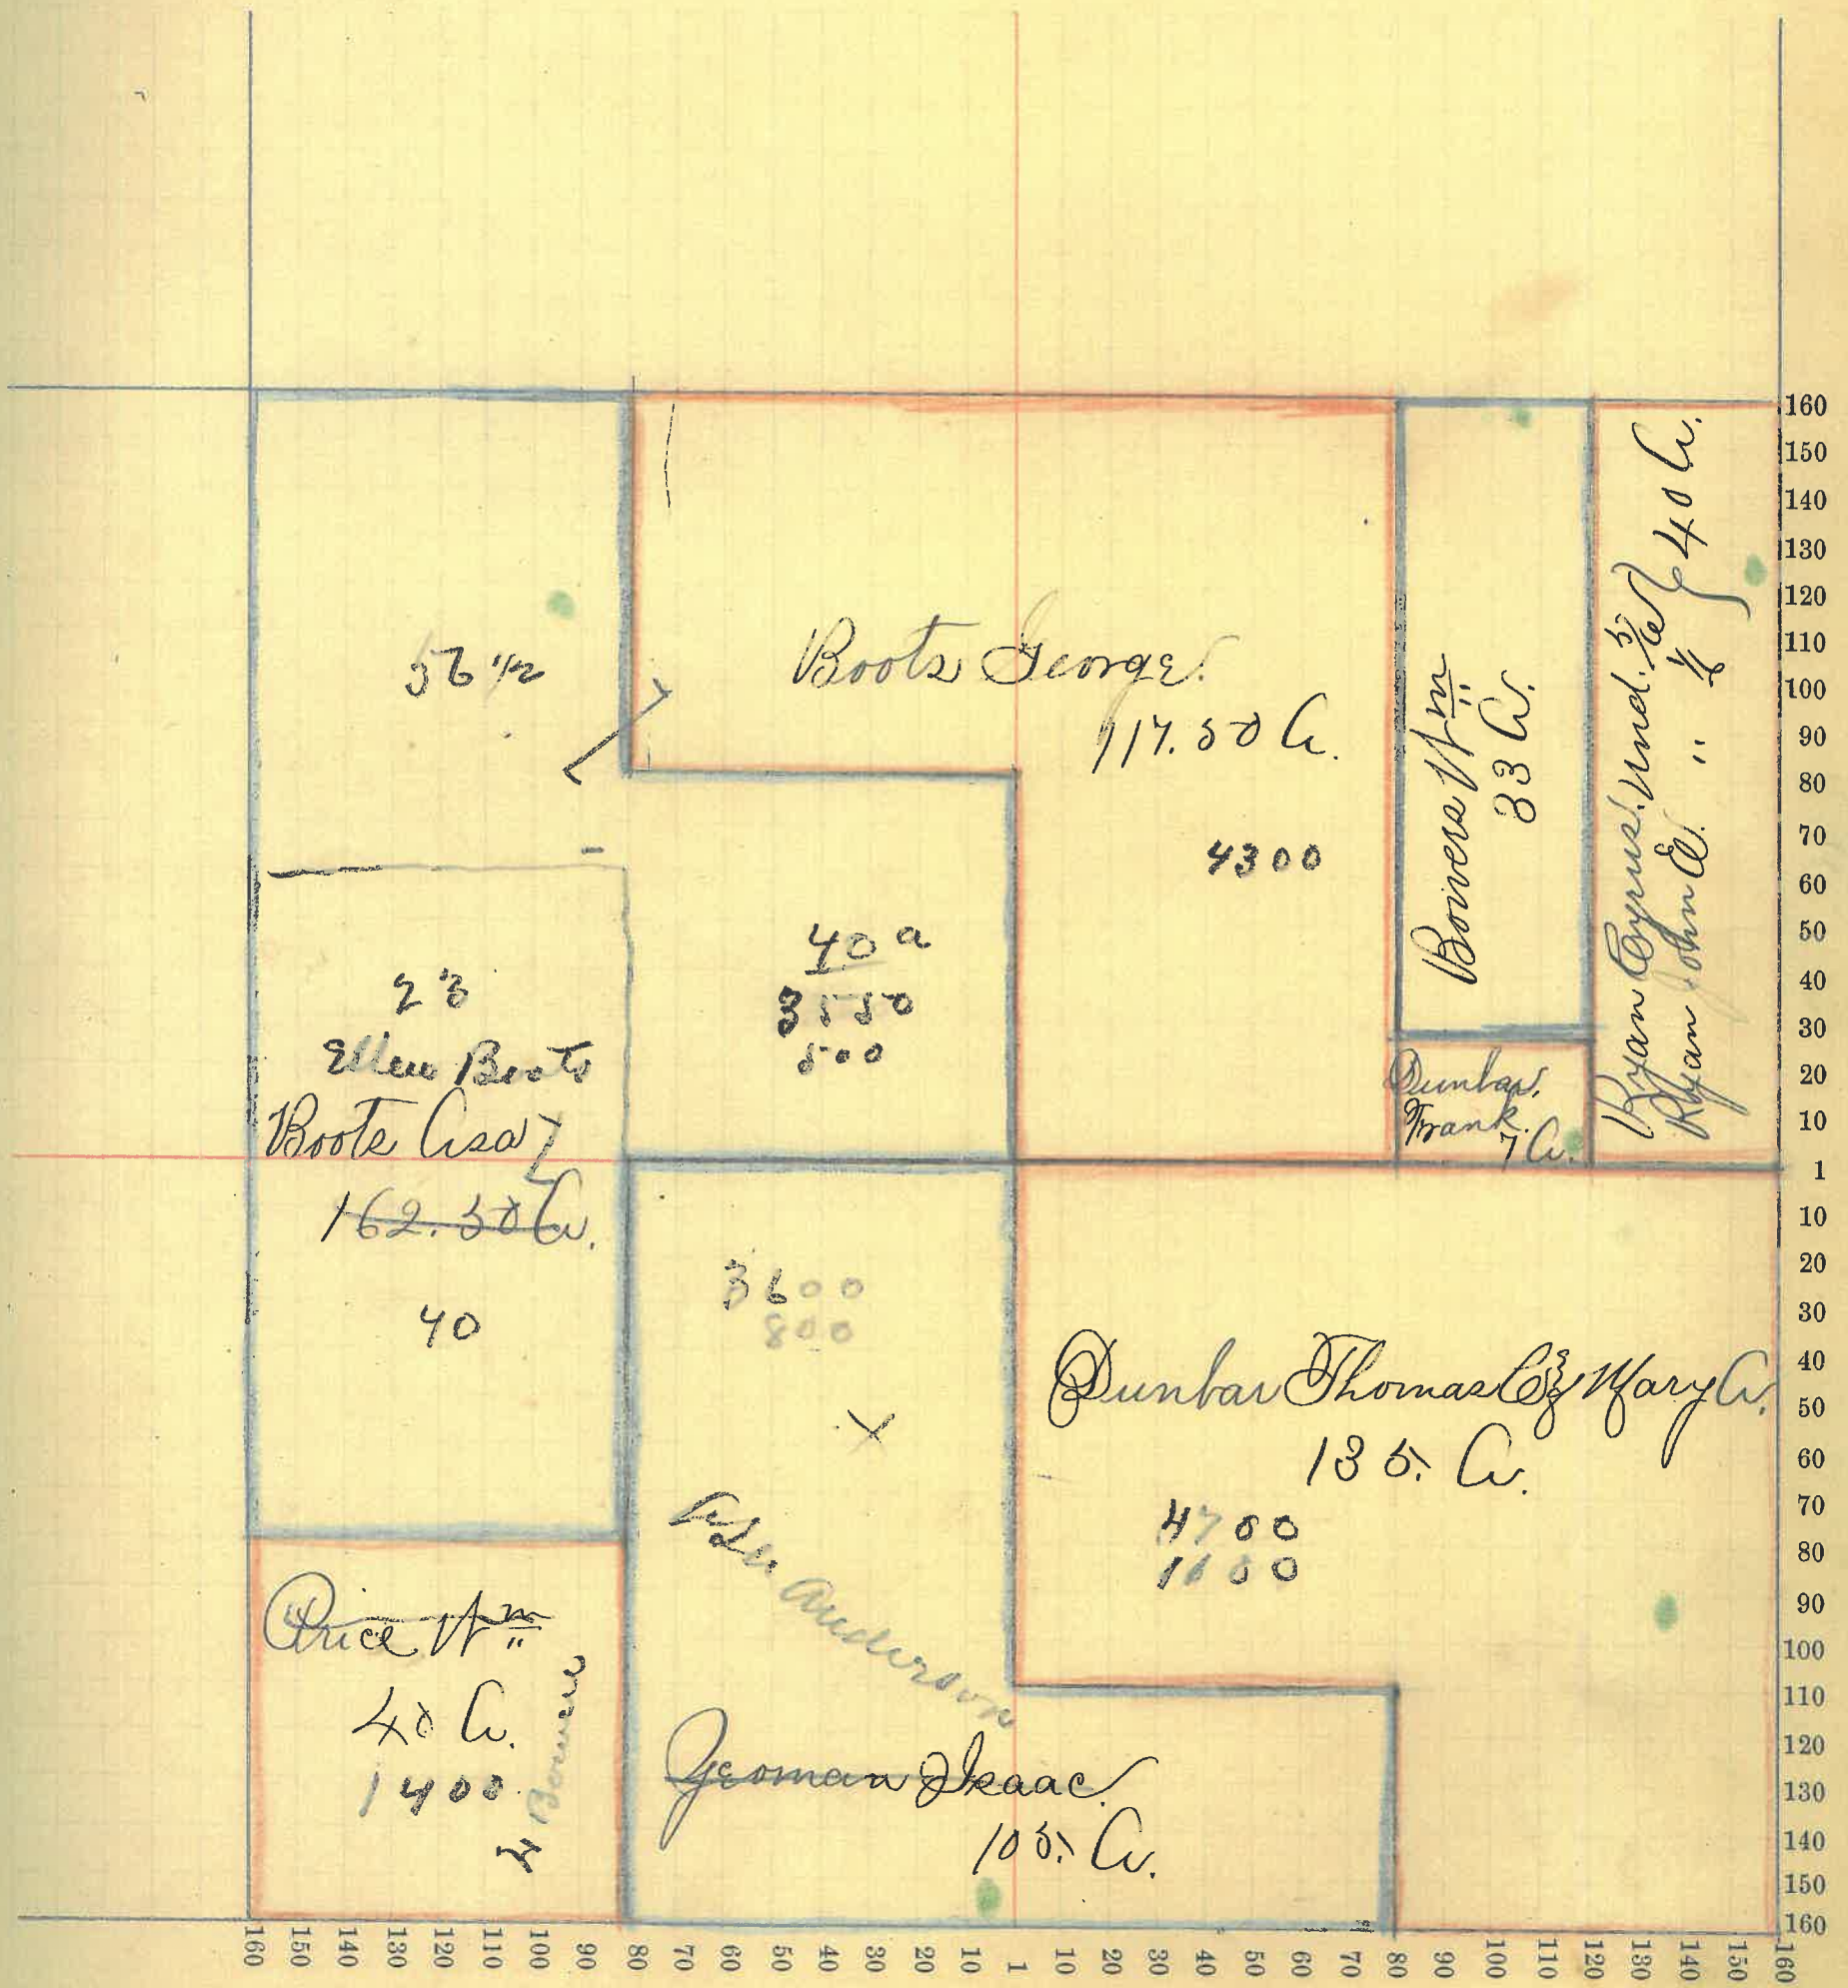 56 1/2
Boots George.
117.50 A.
4300
Bowers Wm
33 A.
Ryan Cyrus. Und. 5/6 } 40 A.
Ryan John E. " 1/6
40 a
3550
500
23
Ellen Boots
Boots Asa
162.50 A.
40
Dunbar.
Frank.
7 A.
3600
800
X
Anderson
Dunbar Thomas C. & Mary A.
135. A.
4700
1600
Price Wm
40 A.
1400
Yeoman Isaac.
105. A.
160
150
140
130
120
110
100
90
80
70
60
50
40
30
20
10
1
10
20
30
40
50
60
70
80
90
100
110
120
130
140
150
160
160 150 140 130 120 110 100 90 80 70 60 50 40 30 20 10 1 10 20 30 40 50 60 70 80 90 100 110 120 130 140 150 160